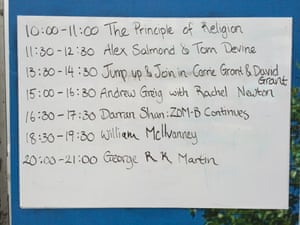 10:00-11:00 The Principle of Religion
11:30-12:30 Alex Salmond & Tom Devine
13:30-14:30 Jump up & Join in Carrie Grant & David
Grant
15:00-16:00 Andrew Greig with Rachel Newton
16:30-17:30 Darran Shan: ZOM-B Continues
18:30-19:30 William McIlvanney
20:00-21:00 George R R Martin